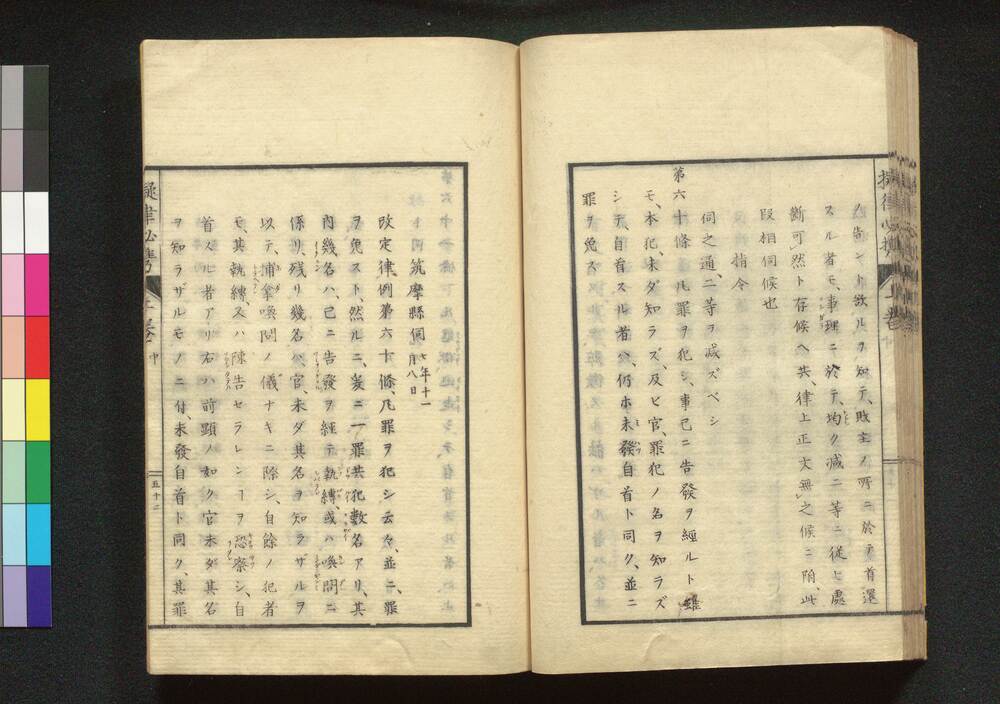 ノ告ント欲ルヲ知テ、財主ノ所ニ於テ首還
スル者モ、事理ニ於テ、均ク減二等ニ従ヒ處
斷可然ト存候ヘ共、律上正文無之候ニ附、此
段相伺候也
指令
伺之通二等ヲ減ズベシ
第六十條凡罪ヲ犯シ、事已ニ告發ヲ經ルト雖
モ、本犯、未ダ知ラズ、及ビ官、罪犯ノ名ヲ知ラズ
シテ、自首スル者ハ、仍ホ未發自首ト同ク、並ニ
罪ヲ免ス
筑摩縣伺 七年十一月八日
改定律例第六十條、凡罪ヲ犯シ云々、並ニ、罪
ヲ免スト、然ルニ、爰ニ一罪共犯數名アリ、其
內幾名ハ、已ニ告發ヲ經テ執縛、或ハ喚問ニ
係リ、殘リ幾名ハ、官、未ダ其名ヲ知ラザルヲ
以テ、捕拿喚問ノ儀ナキニ際シ、自餘ノ犯者
モ、其執縛、又ハ陳告セラレンヿヲ恐察シ、自
首スル者アリ右ハ前顕ノ如ク官未ダ其名
ヲ知ラザルモノニ付、未發自首ト同ク、其罪
擬律必携
上卷
中
五十二